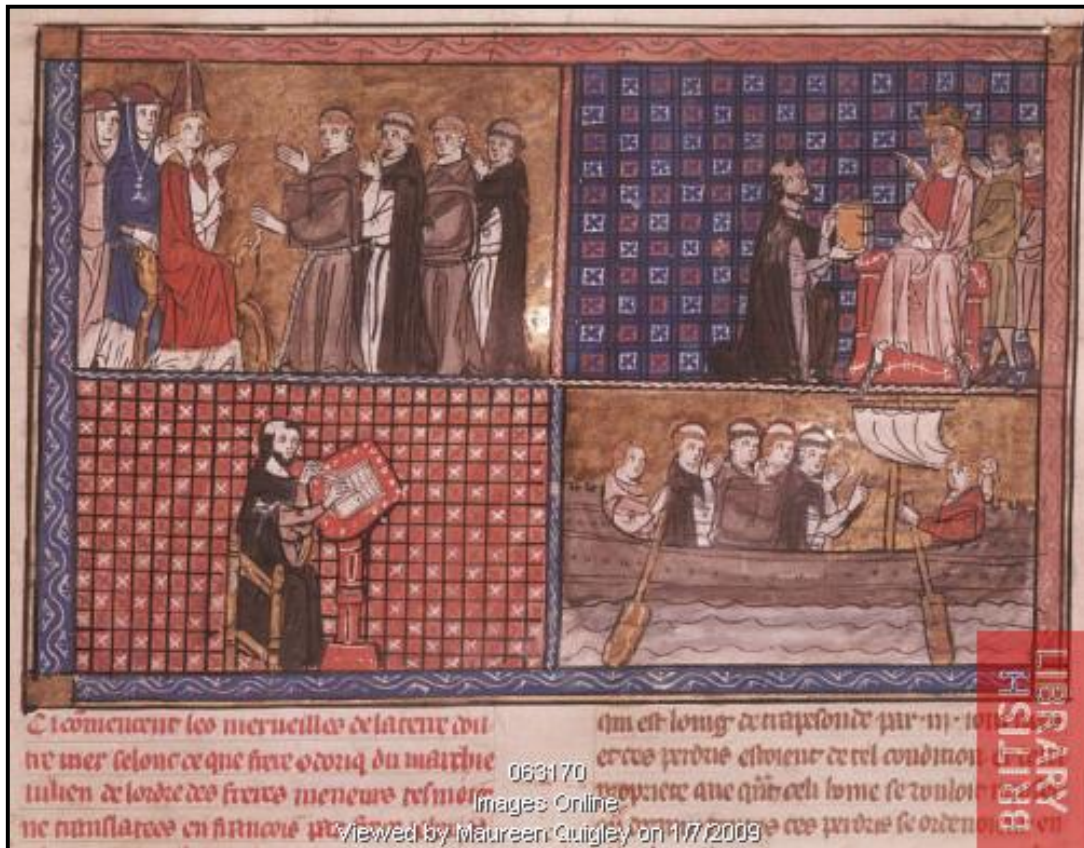 Ci cōmencent les merueilles de la terre dou
tre mer selonc ce que frere odoriq du marchie
iulien de lordre des freres meneurs tesmoin
ne translatees en francois
qui est loing de trapesonde par .iij. iour
et ces perdris estoient de tel condition
propriete que q̄nt celi home se vouloit
ces perdris se ordenoi en
063170
Images Online
Viewed by Maureen Quigley on 1/7/2009
BRITISH
LIBRARY